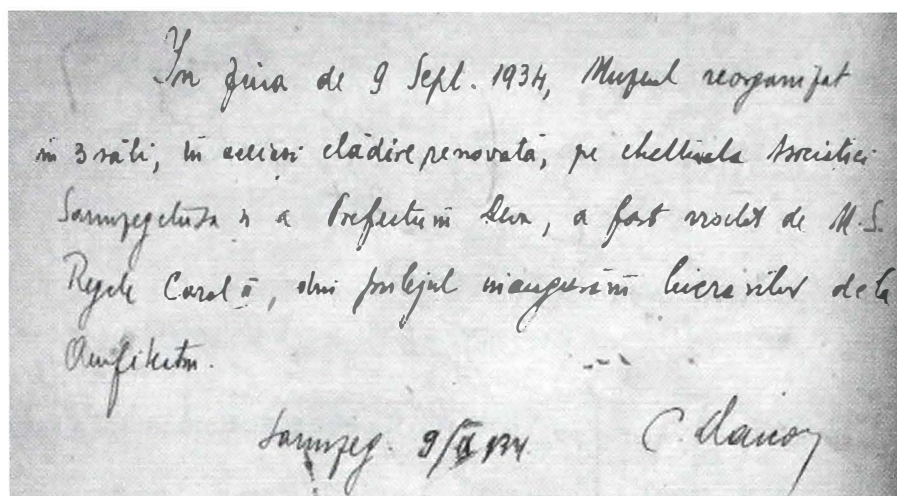 In ziua de 9 Sept. 1934, Muzeul reorganizat
in 3 săli, în aceiași clădire renovată, pe cheltuiala Asociației
Sarmizegetusa și a Prefecturii Deva, a fost vizitat de M.S.
Regele Carol II, din prilejul inaugurării lucrărilor dela
Amfiteatru.
Sarmizeg. 9/IX 934
C. Daicov